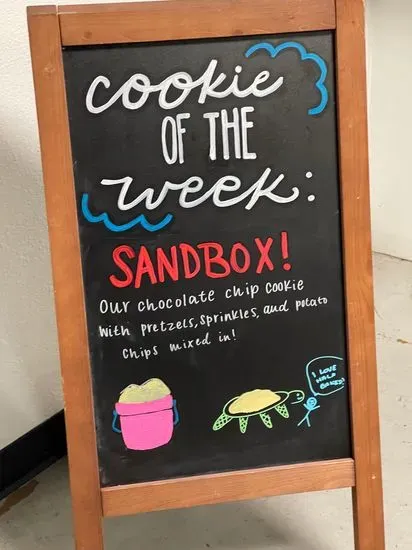 cookie
OF THE
week:
SANDBOX!
Our chocolate chip cookie
with pretzels, sprinkles, and potato
chips mixed in!
I LOVE
HALF
BAKED!